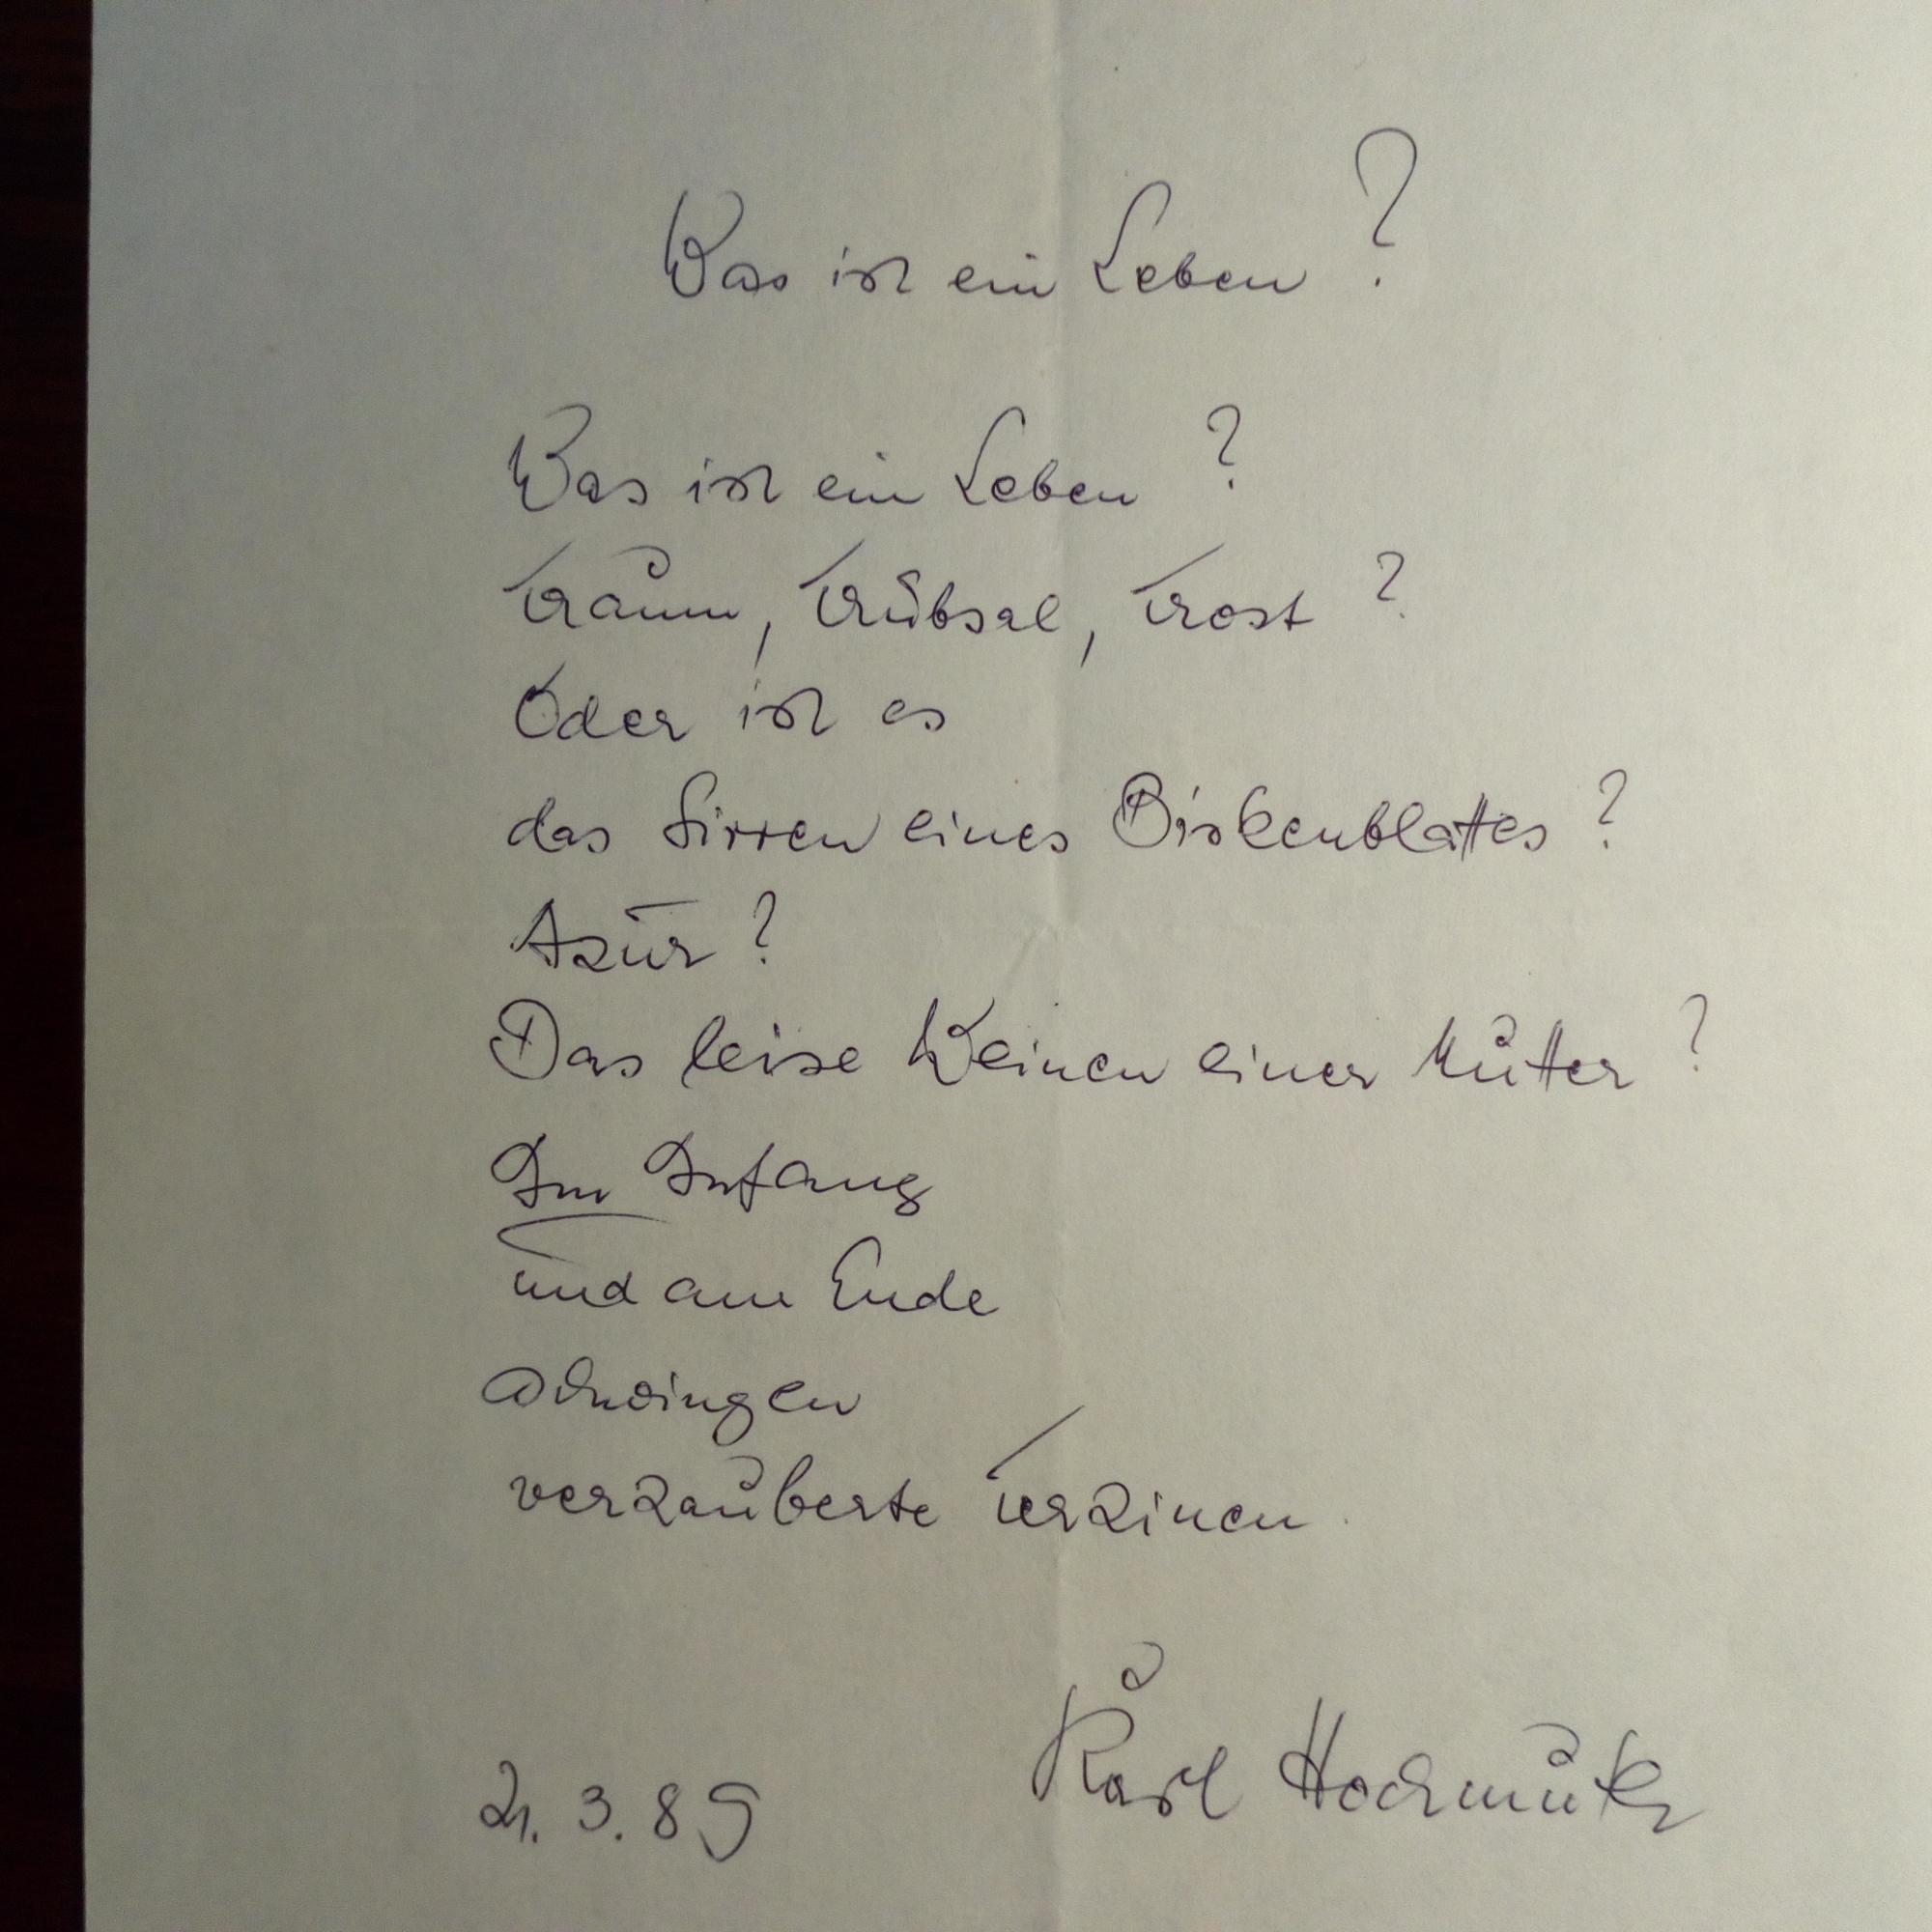 Was ist ein Leben?
Was ist ein Leben?
Traum, Trübsal, Trost?
Oder ist es
das Sirren eines Birkenblattes?
Azur?
Das leise Weinen einer Mutter?
Im Anfang
und am Ende
schwingen
verzauberte Terzinen.
21.3.89 Karl Hochmuth